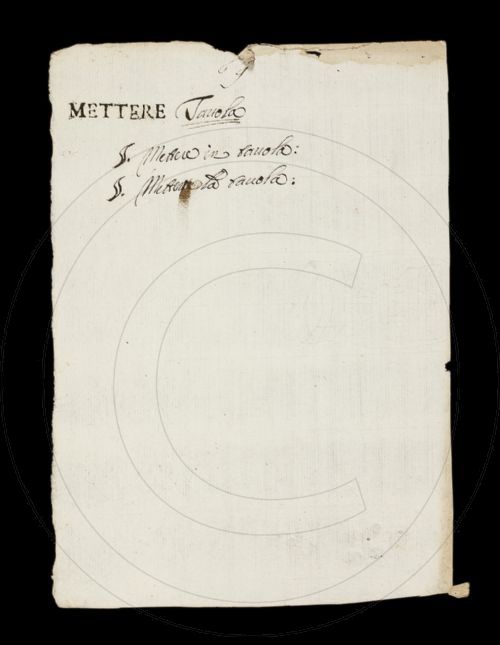 METTERE Tauola
§. Mettere in tauola:
§. Mettere la tauola: